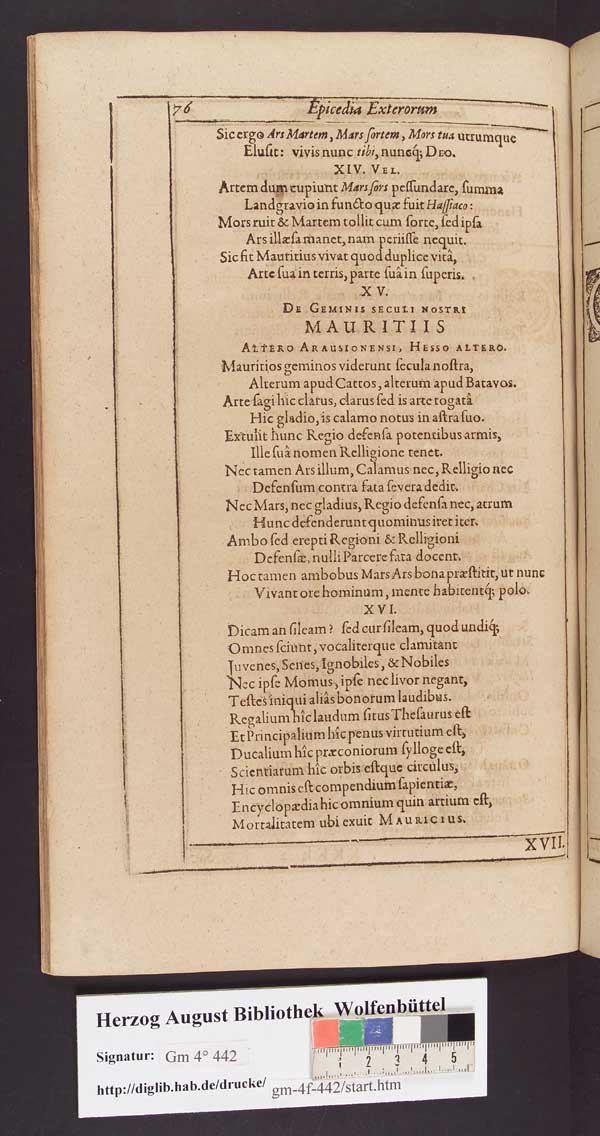 76 Epicedia Exterorum
Sic ergo Ars Martem, Mars sortem, Mors tua utrumque
Elusit: vivis nunc tibi, nuncq; DEO.
XIV. VEL.
Artem dum cupiunt Mars sors pessundare, summa
Landgravio in functo quæ fuit Hassiaco:
Mors ruit & Martem tollit cum sorte, sed ipsa
Ars illæsa manet, nam periisse nequit.
Sic fit Mauritius vivat quod duplice vitâ,
Arte sua in terris, parte suâ in superis.
XV.
DE GEMINIS SECULI NOSTRI
MAURITIIS
ALTERO ARAUSIONENSI, HESSO ALTERO.
Mauritios geminos viderunt secula nostra,
Alterum apud Cattos, alterum apud Batavos.
Arte sagi hic clarus, clarus sed is arte togatâ
Hic gladio, is calamo notus in astra suo.
Extulit hunc Regio defensa potentibus armis,
Ille suâ nomen Relligione tenet.
Nec tamen Ars illum, Calamus nec, Relligio nec
Defensum contra fata severa dedit.
Nec Mars, nec gladius, Regio defensa nec, atrum
Hunc defenderunt quominus iret iter.
Ambo sed erepti Regioni & Relligioni
Defensæ, nulli Parcere fata docent.
Hoc tamen ambobus Mars Ars bona præstitit, ut nunc
Vivant ore hominum, mente habitentq; polo.
XVI.
Dicam an sileam? sed cur sileam, quod undiq;
Omnes sciunt, vocaliterque clamitant
Juvenes, Senes, Ignobiles, & Nobiles
Nec ipse Momus, ipse nec livor negant,
Testes iniqui aliâs bonorum laudibus.
Regalium hîc laudum situs Thesaurus est
Et Principalium hîc penus virtutium est,
Ducalium hîc præconiorum sylloge est,
Scientiarum hîc orbis estque circulus,
Hic omnis est compendium sapientiæ,
Encyclopædia hic omnium quin artium est,
Mortalitatem ubi exuit MAURICIUS.
XVII.
Herzog August Bibliothek Wolfenbüttel
Signatur: Gm 4° 442
http://diglib.hab.de/drucke/ gm-4f-442/start.htm
1 2 3 4 5